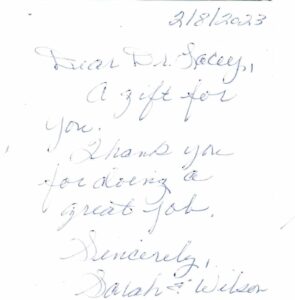 2/8/2023
Dear Dr. Lacey,
A gift for
you.
Thank you
for doing a
great job.
Sincerely,
Sarah & Wilson